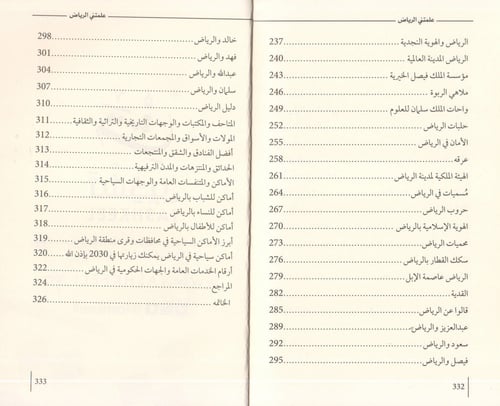 علمتني الرياض
الرياض والهوية النجدية 237
الرياض المدينة العالمية 240
مؤسسة الملك فيصل الخيرية 243
ملاهي الربوة 246
واحات الملك سلمان للعلوم 249
حلبات الرياض 252
الأمان في الرياض 255
عرقه 258
الهيئة الملكية لمدينة الرياض 261
مُسميات في الرياض 264
حروب الرياض 267
الهوية الإسلامية بالرياض 270
محميات الرياض 273
سكك القطار بالرياض 276
الرياض عاصمة الإبل 279
القدية 282
قالوا عن الرياض 285
عبدالعزيز والرياض 289
سعود والرياض 292
فيصل والرياض 295
332
علمتني الرياض
خالد والرياض 298
فهد والرياض 301
عبدالله والرياض 304
سلمان والرياض 307
دليل الرياض 310
المتاحف والمكتبات والوجهات التاريخية والتراثية والثقافية 311
المولات والأسواق والمجمعات التجارية 312
أفضل الفنادق والشقق والمنتجعات 313
الحدائق والمنتزهات والمدن الترفيهية 314
الأماكن والمتنفسات العامة والوجهات السياحية 315
أماكن للشباب بالرياض 316
أماكن للنساء بالرياض 317
أماكن للأطفال بالرياض 318
أبرز الأماكن السياحية في محافظات وقرى منطقة الرياض 319
أماكن سياحية في الرياض يمكنك زيارتها في 2030 بإذن الله 320
أرقام الخدمات العامة والجهات الحكومية في الرياض 322
المراجع 324
الخاتمه 326
333